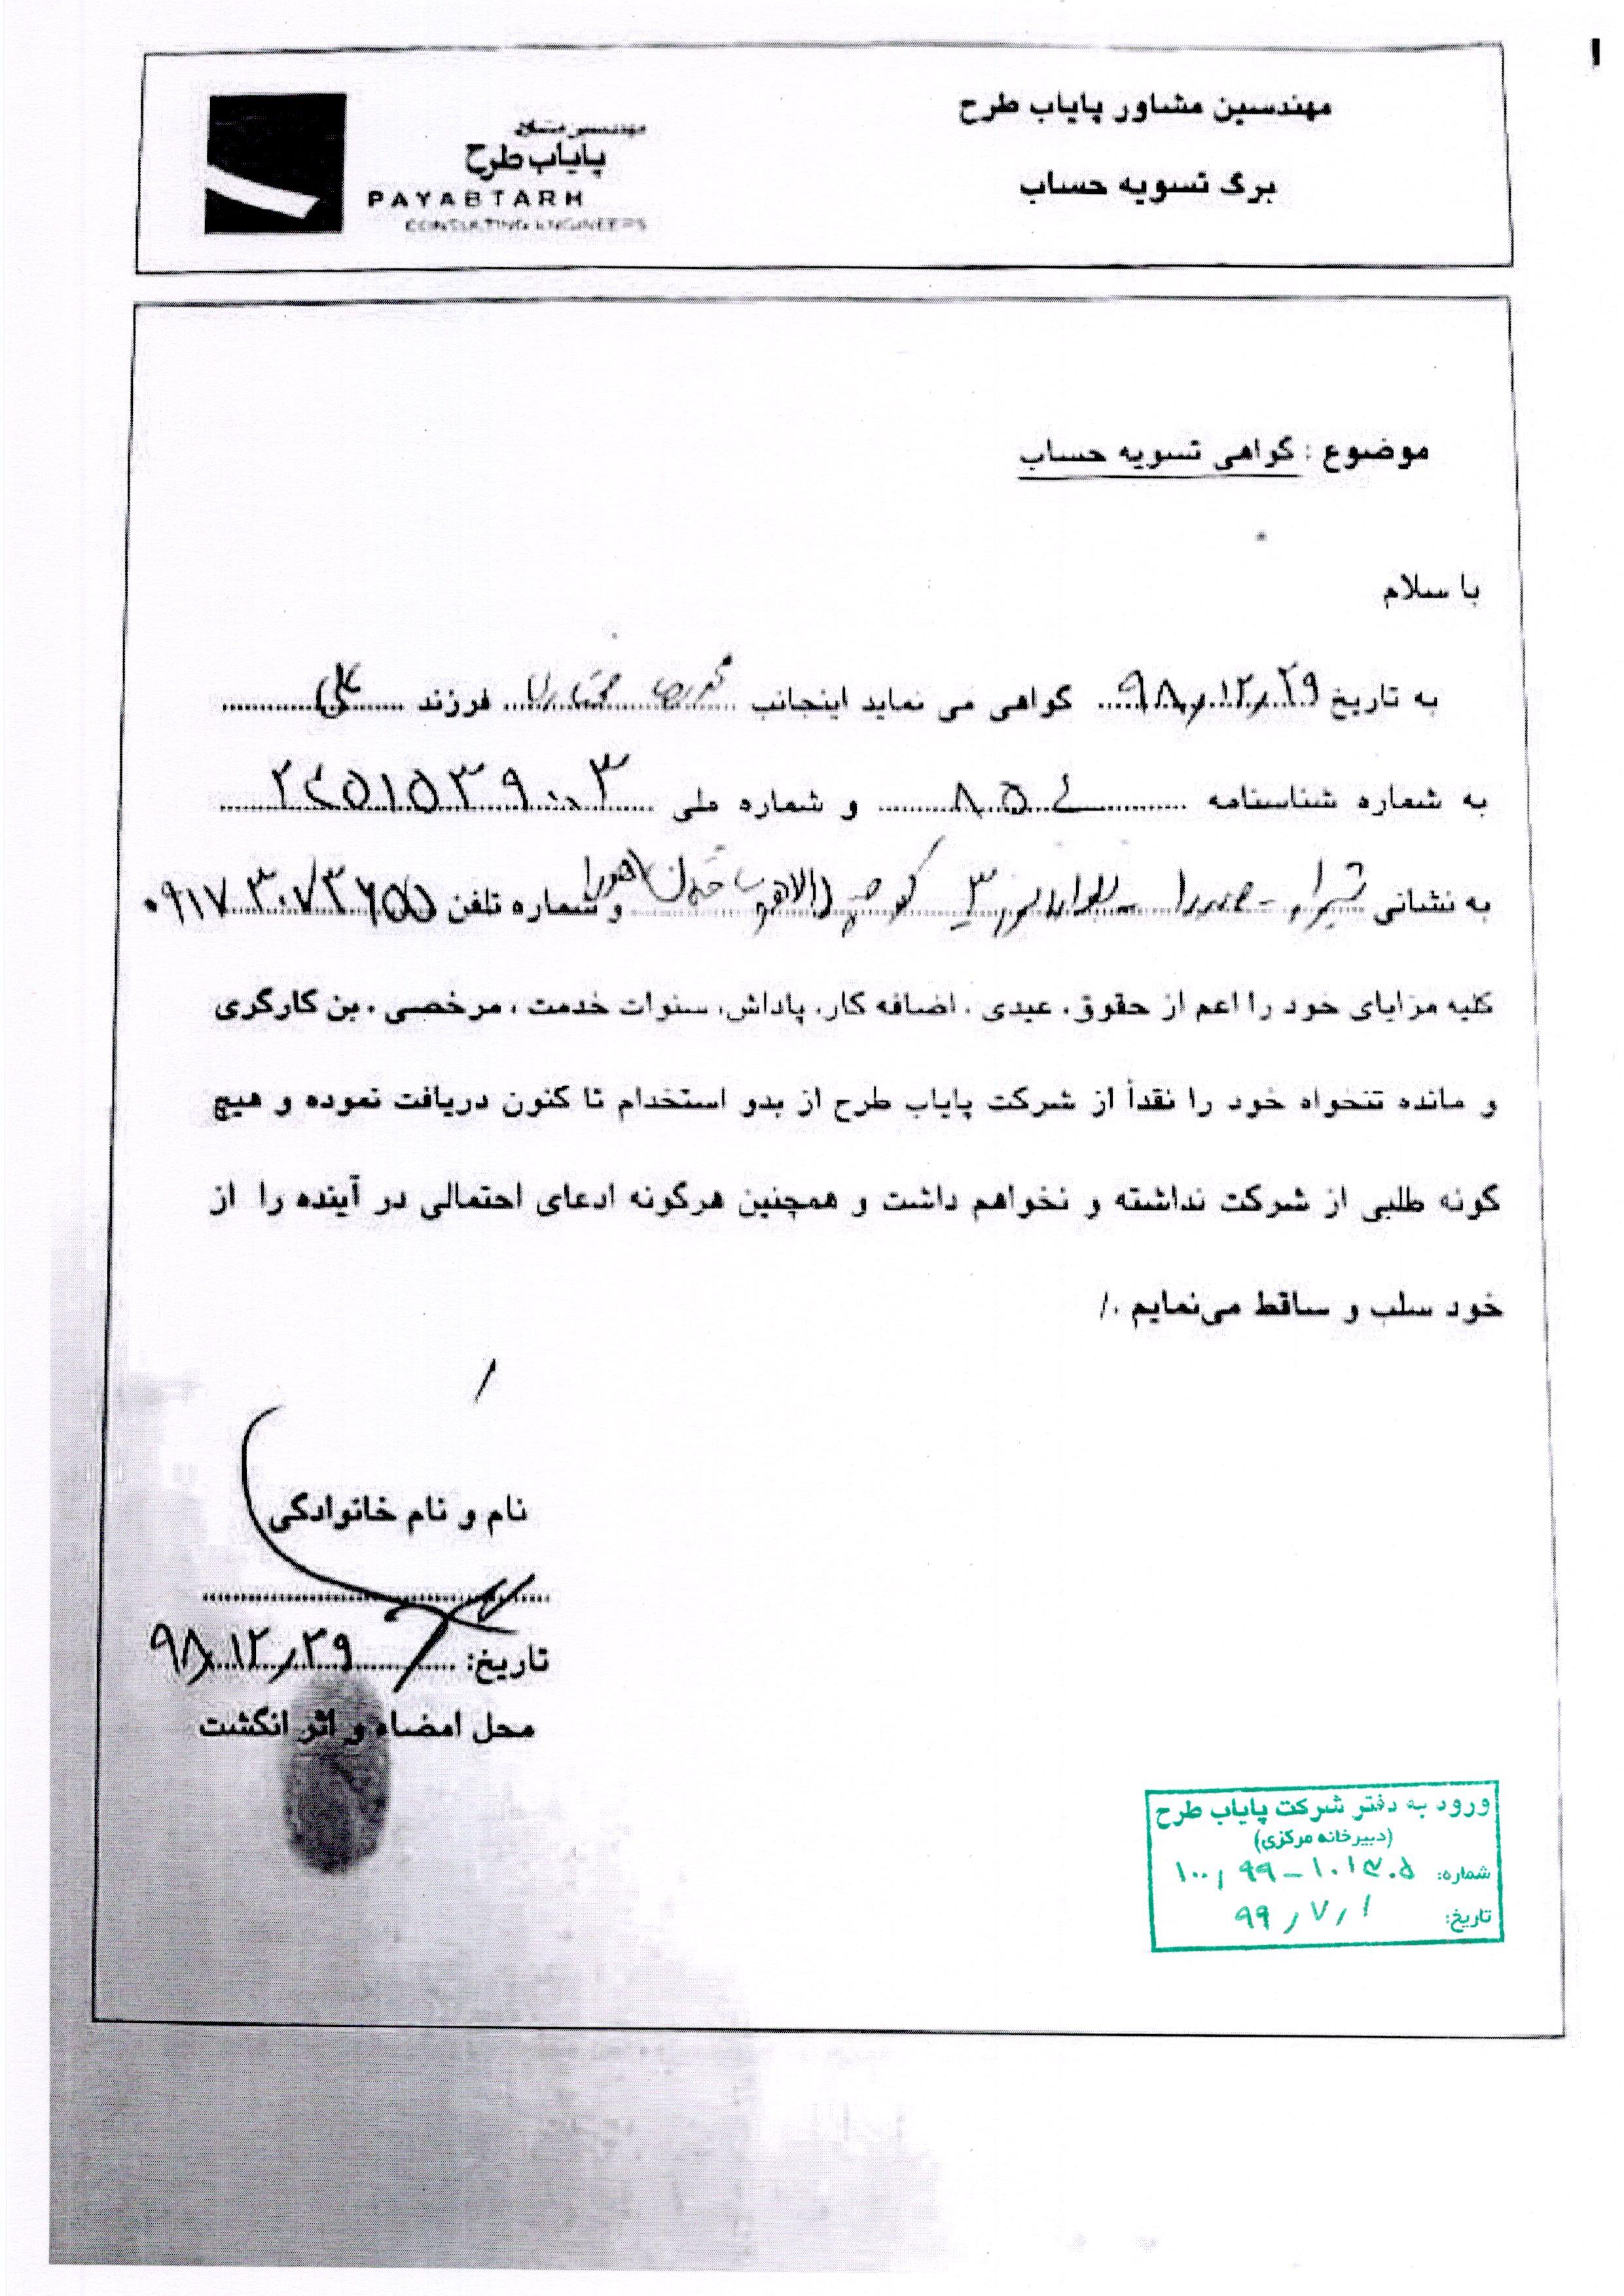 مهندسین مشاور پایاب طرح
برگ تسویه حساب
مهندسین مشاور
پایاب طرح
PAYABTARH
CONSULTING ENGINEERS
موضوع : گواهی تسویه حساب
با سلام
به تاریخ ۹۸/۱۲/۲۹ گواهی می نماید اینجانب محمدرضا مختاری فرزند علی
به شماره شناسنامه ۸۵۴ و شماره ملی ۲۴۵۱۵۳۹۰۰۳
به نشانی شیراز - صدرا - بلوار ۳ کوچه ساختمان اهورا و شماره تلفن ۰۹۱۷۳۰۷۳۶۵۵
کلیه مزایای خود را اعم از حقوق، عیدی، اضافه کار، پاداش، سنوات خدمت، مرخصی، بن کارگری
و مانده تنخواه خود را نقداً از شرکت پایاب طرح از بدو استخدام تا کنون دریافت نموده و هیچ
گونه طلبی از شرکت نداشته و نخواهم داشت و همچنین هرگونه ادعای احتمالی در آینده را از
خود سلب و ساقط می‌نمایم ./
نام و نام خانوادگی
تاریخ: ۹۸/۱۲/۲۹
محل امضاء و اثر انگشت
ورود به دفتر شرکت پایاب طرح
(دبیرخانه مرکزی)
شماره: ۱۰۰/۹۹-۱۰۱۳۰۵
تاریخ: ۹۹/۷/۱